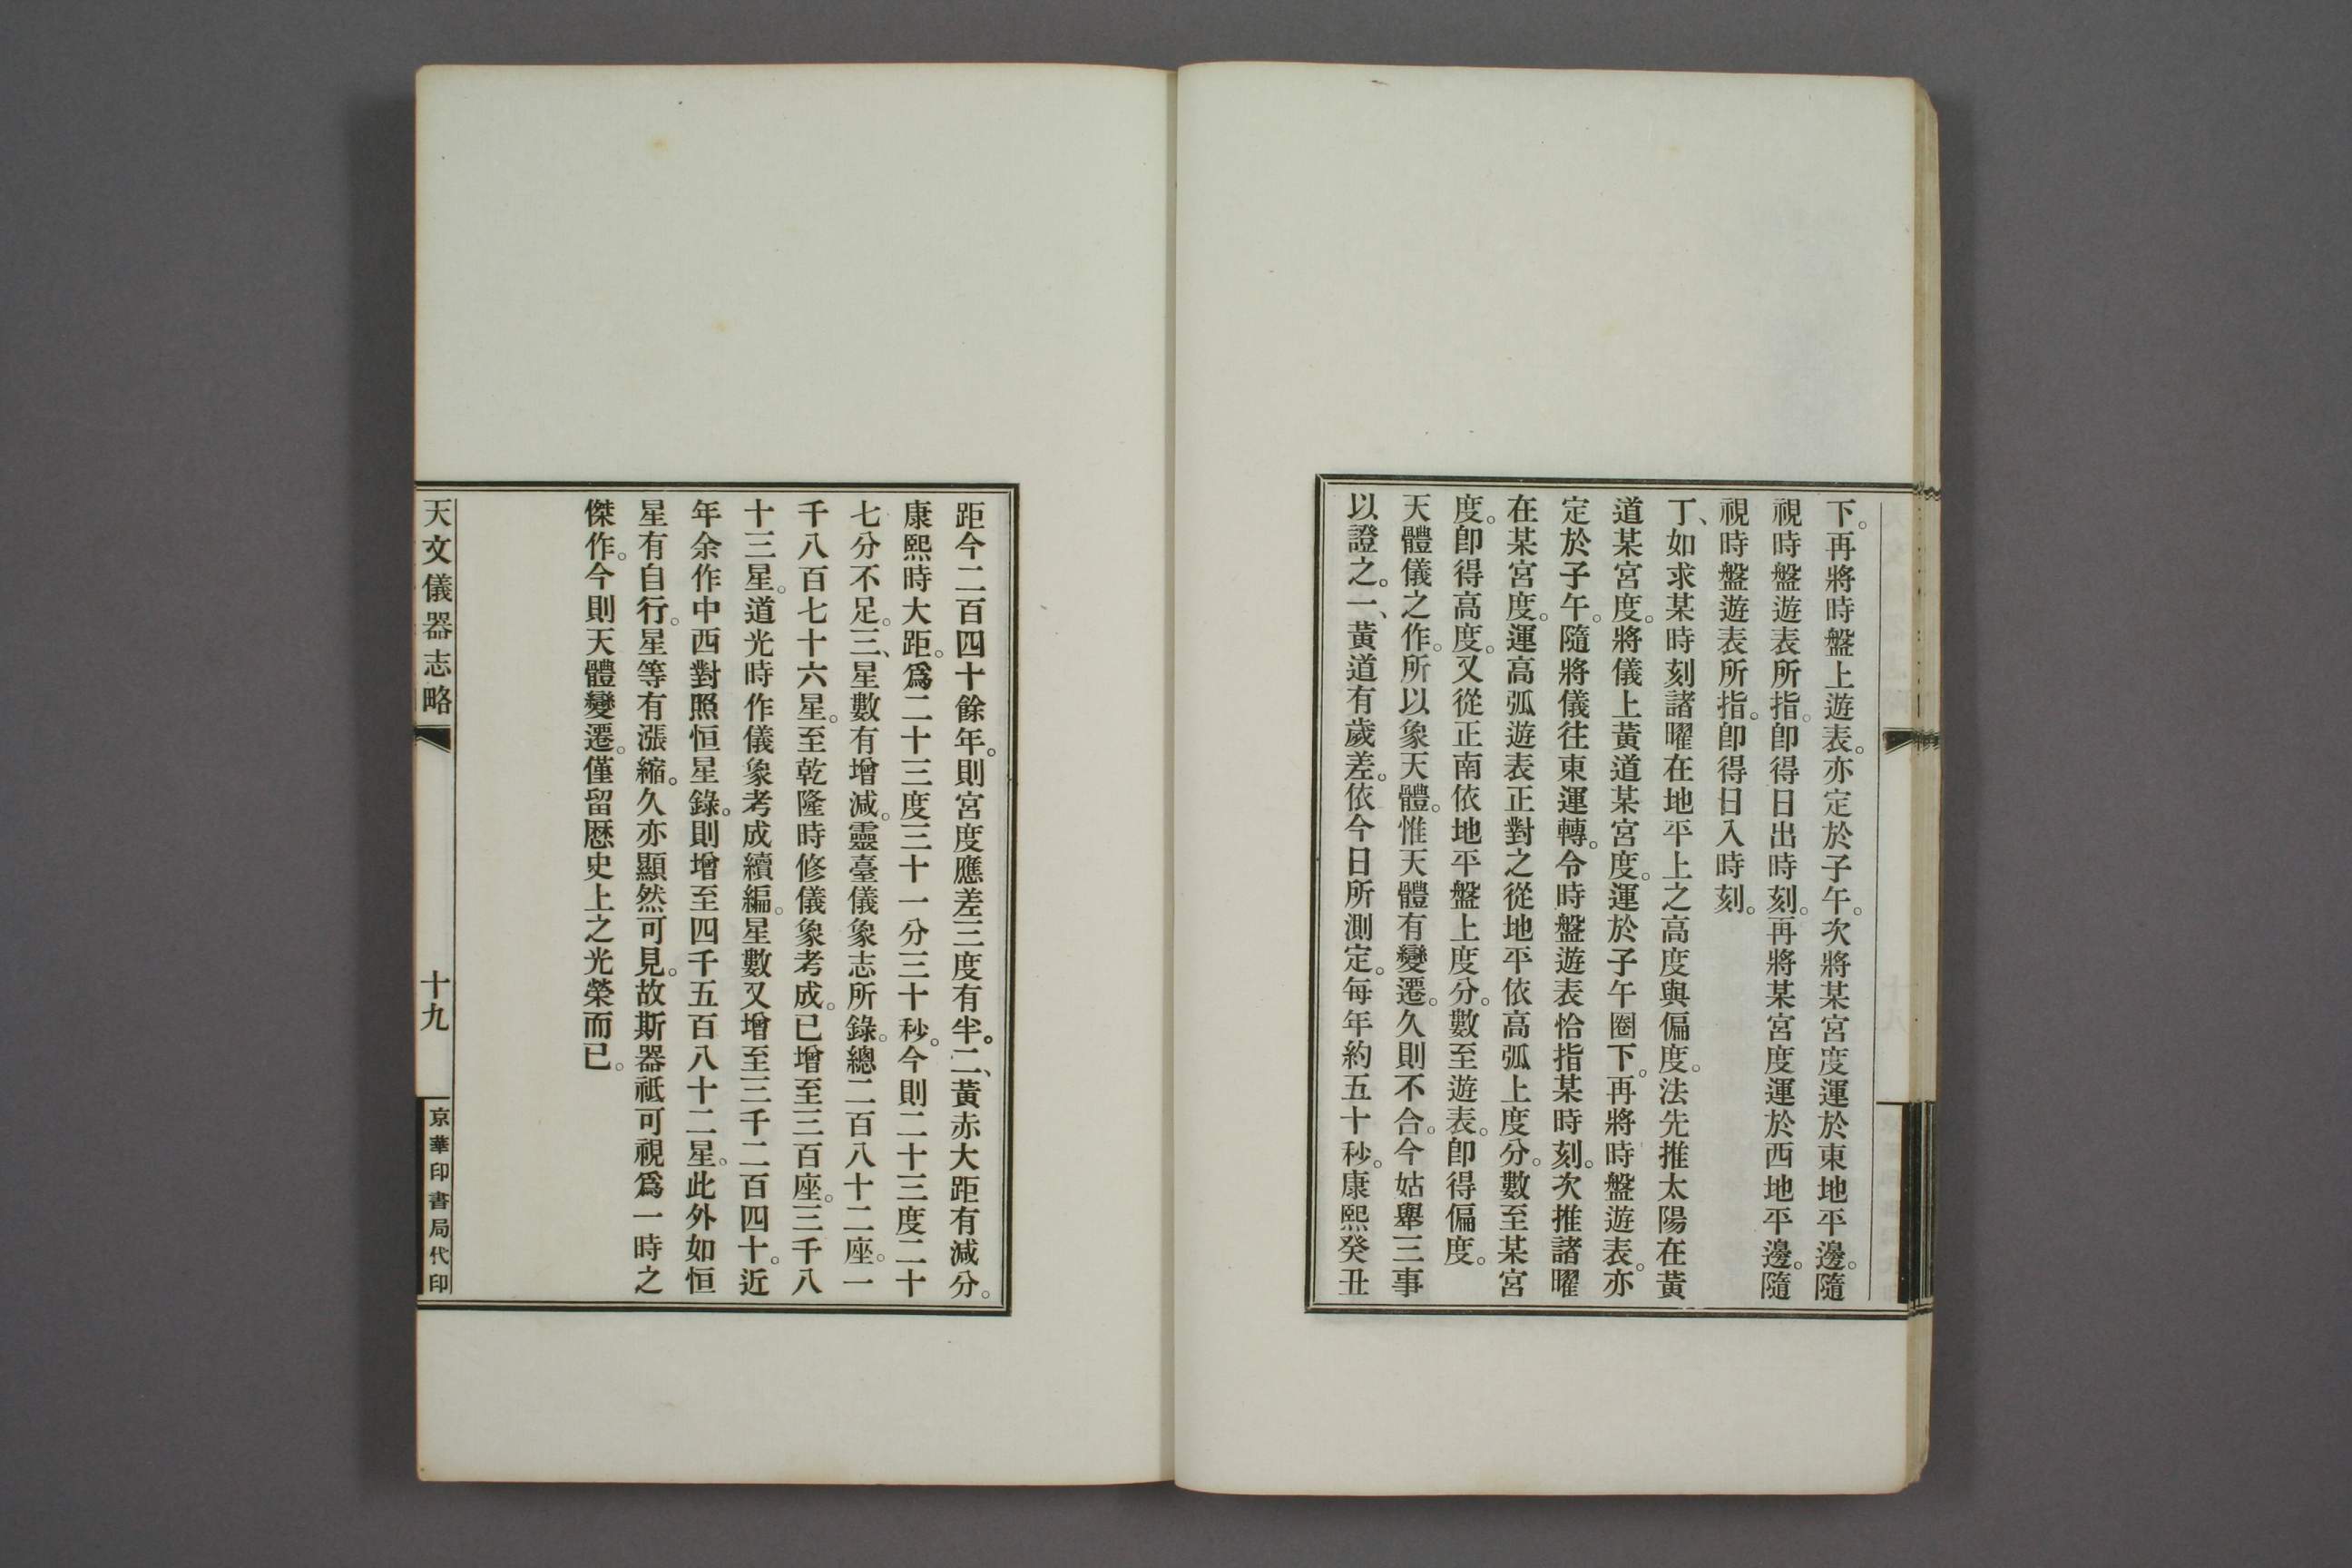 下。再將時盤上遊表。亦定於子午。次將某宮度運於東地平邊。隨
視時盤遊表所指。卽得日出時刻。再將某宮度運於西地平邊。隨
視時盤遊表所指。卽得日入時刻。
丁、如求某時刻諸曜在地平上之高度與偏度。法先推太陽在黃
道某宮度。將儀上黃道某宮度。運於子午圈下。再將時盤遊表。亦
定於子午。隨將儀往東運轉。令時盤遊表恰指某時刻。次推諸曜
在某宮度。運高弧遊表正對之從地平依高弧上度分。數至某宮
度。卽得高度。又從正南依地平盤上度分。數至遊表。卽得偏度。
天體儀之作。所以象天體。惟天體有變遷。久則不合。今姑舉三事
以證之。一、黃道有歲差。依今日所測定。每年約五十秒。康熙癸丑
距今二百四十餘年。則宮度應差三度有半。二、黃赤大距有減分。
康熙時大距。爲二十三度三十一分三十秒。今則二十三度二十
七分不足。三、星數有增減。靈臺儀象志所錄。總二百八十二座。一
千八百七十六星。至乾隆時修儀象考成。已增至三百座。三千八
十三星。道光時作儀象考成續編。星數又增至三千二百四十。近
年余作中西對照恒星錄。則增至四千五百八十二星。此外如恒
星有自行。星等有漲縮。久亦顯然可見。故斯器祗可視爲一時之
傑作。今則天體變遷。僅留歷史上之光榮而已。
天文儀器志略
十九
京華印書局代印